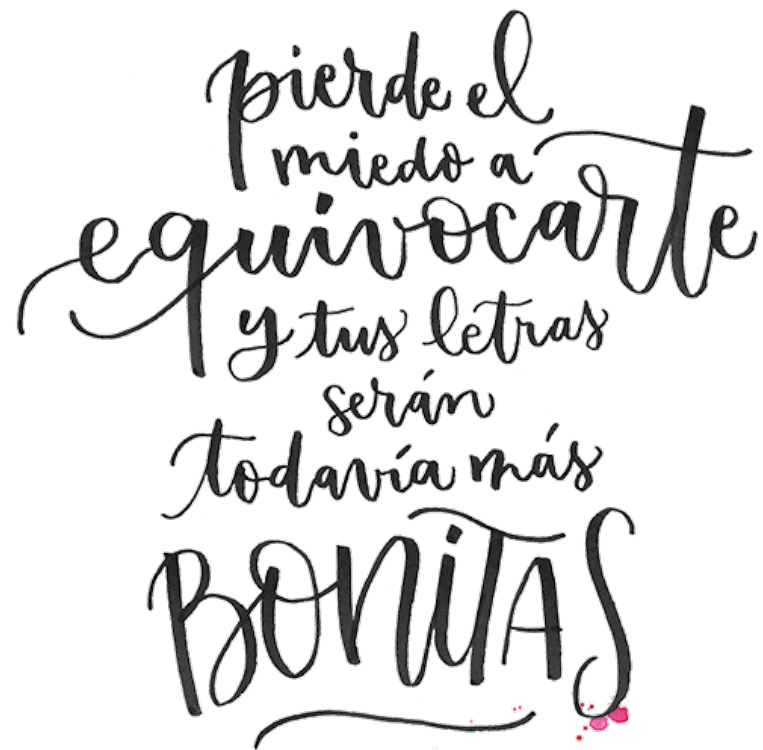 pierde el
miedo a
equivocarte
y tus letras
serán
todavía más
BONiTAS